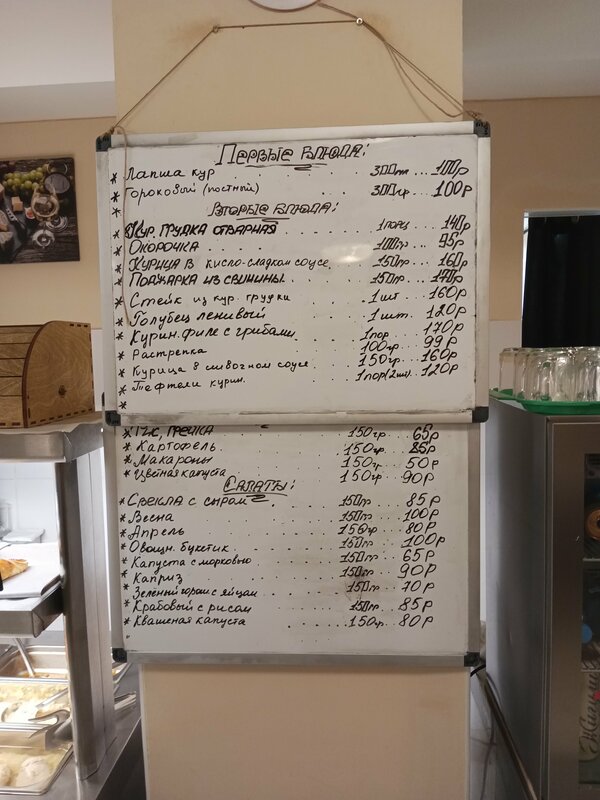 Первые блюда:
* Лапша кур 300гр... 100р
* Гороховый (постный) 300гр. 100р
*
Вторые блюда:
* Кур. грудка отварная 1порц 140р
* Окорочка 100гр. 95р
* Курица в кисло-сладком соусе 150гр. 160р
* Поджарка из свинины 150гр. 170р
* Стейк из кур. грудки 1шт 160р
* Голубец ленивый 1шт. 120р
* Курин. филе с грибами 1пор 170р
* Растрепка 100гр 99р
* Курица в сливочном соусе 150гр 160р
* Тефтели курин. 1пор(2шт) 120р
*
* Рис, гречка 150гр 65р
* Картофель 150гр 85р
* Макароны 150гр 50р
* Цветная капуста 150гр 90р
Салаты:
* Свекла с сыром 150гр 85р
* Весна 150гр 100р
* Апрель 150гр 80р
* Овощн. букетик 150гр 100р
* Капуста с морковью 150гр 65р
* Каприз 150гр 90р
* Зеленый горош с яйцам 150гр 70р
* Крабовый с рисом 150гр 85р
* Квашеная капуста 150гр 80р
Жигули